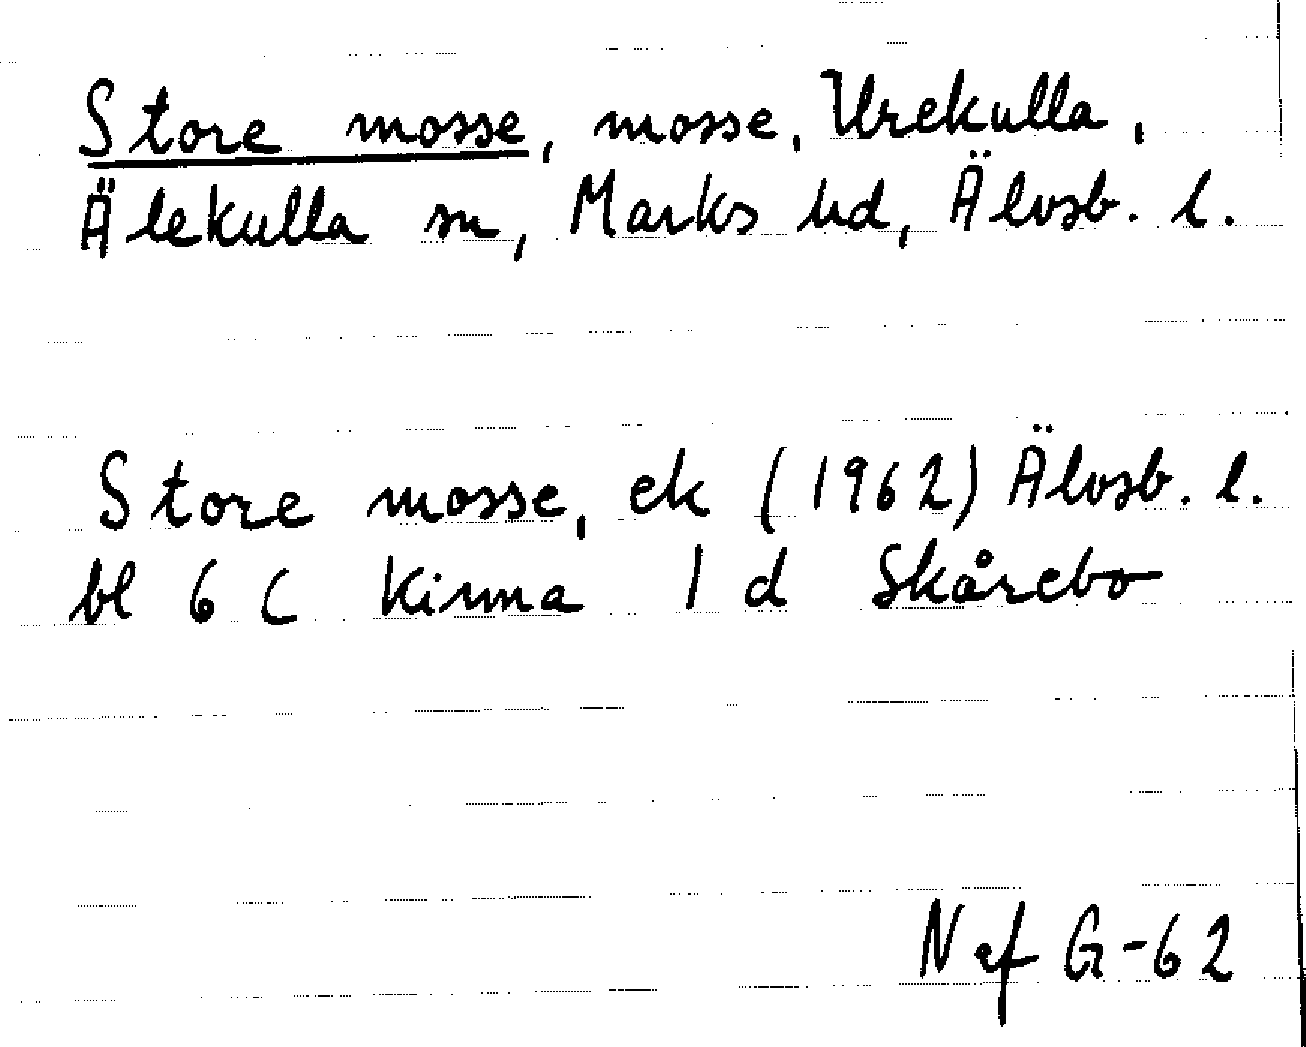 Store mosse, mosse, Urekulla,
Älekulla sn, Marks hd, Älvsb. l.
Store mosse, ek (1962) Älvsb. l.
bl 6 C Kinna 1 d Skårebo
Naf G-62